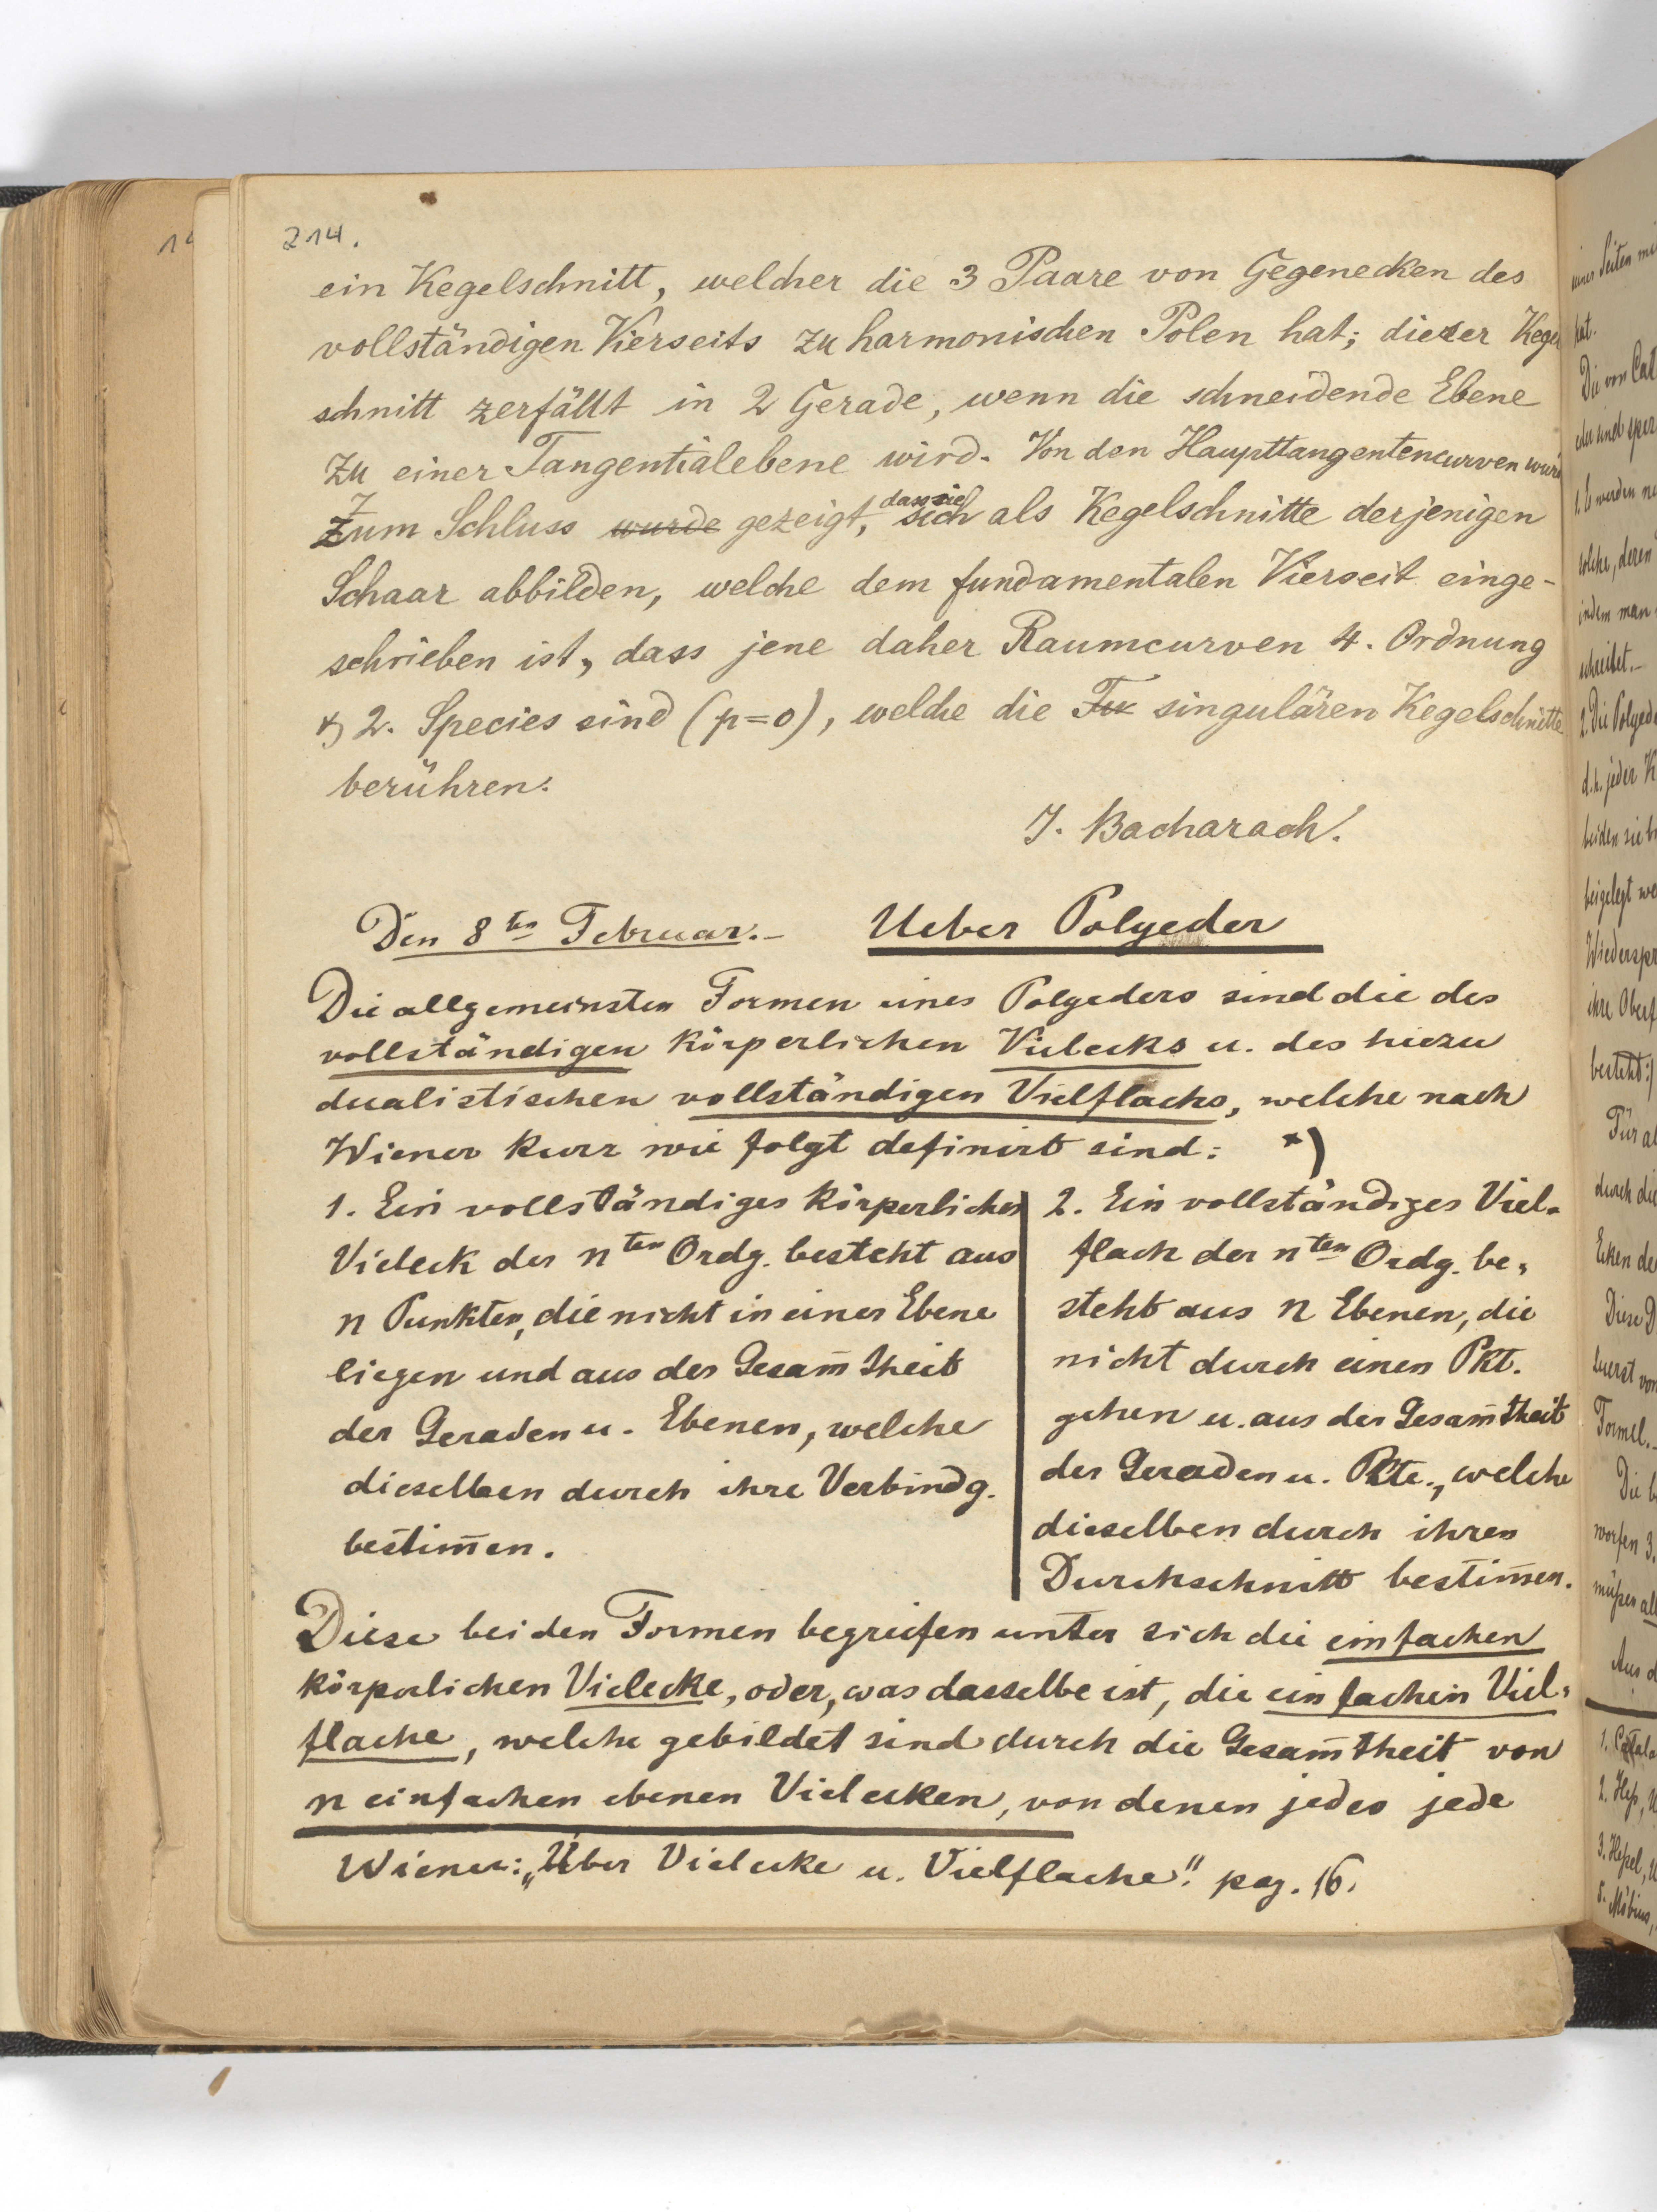 214.
ein Kegelschnitt, welcher die 3 Paare von Gegenecken des
vollständigen Vierseits zu harmonischen Polen hat; dieser Kegel
schnitt zerfällt in 2 Gerade, wenn die schneidende Ebene
zu einer Tangentialebene wird. Von den Haupttangentencurven wurde
zum Schluss wurde gezeigt, dass sie sich als Kegelschnitte derjenigen
Schaar abbilden, welche dem fundamentalen Vierseit einge-
schrieben ist, dass jene daher Raumcurven 4. Ordnung
& 2. Species sind (p=0), welche die singulären Kegelschnitte
berühren.
J. Bacharach.
Den 8ten Februar.- Ueber Polyeder
Die allgemeinsten Formen eines Polyeders sind die des
vollständigen körperlichen Vielecks u. des hiezu
dualistischen vollständigen Vielflachs, welche nach
Wiener kurz wie folgt definirt sind: *)
1. Ein vollständiges körperliches
Vieleck der nten Ordg. besteht aus
n Punkten, die nicht in einer Ebene
liegen und aus der Gesam̄theit
der Geraden u. Ebenen, welche
dieselben durch ihre Verbindg.
bestim̄en.
2. Ein vollständiges Viel-
flach der nten Ordg. be-
steht aus n Ebenen, die
nicht durch einen Pkt.
gehen u. aus der Gesam̄theit
der Geraden u. Pkte., welche
dieselben durch ihren
Durchschnitt bestim̄en.
Diese beiden Formen begreifen unter sich die einfachen
körperlichen Vielecke, oder, was dasselbe ist, die einfachen Viel-
flache, welche gebildet sind durch die Gesam̄theit von
n einfachen ebenen Vielecken, von denen jedes jede
Wiener: „Über Vielecke u. Vielflache." pag. 16.